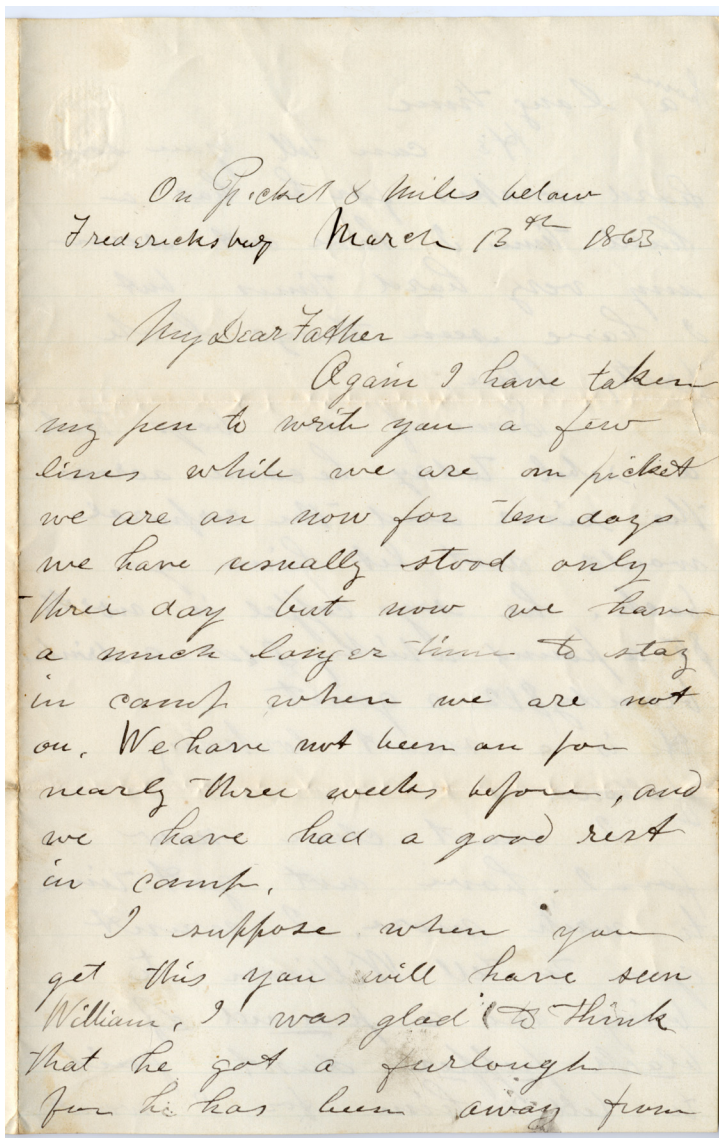 On Picket 8 miles below
Fredericksburg March 13th 1863
My Dear Father
Again I have taken
my pen to write you a few
lines while we are on picket
we are on now for ten days
we have usually stood only
three day but now we have
a much longer time to stay
in camp when we are not
on. We have not been on for
nearly three weeks before, and
we have had a good rest
in camp.
I suppose when you
get this you will have seen
William, I was glad to think
that he got a furlough
for he has been away from